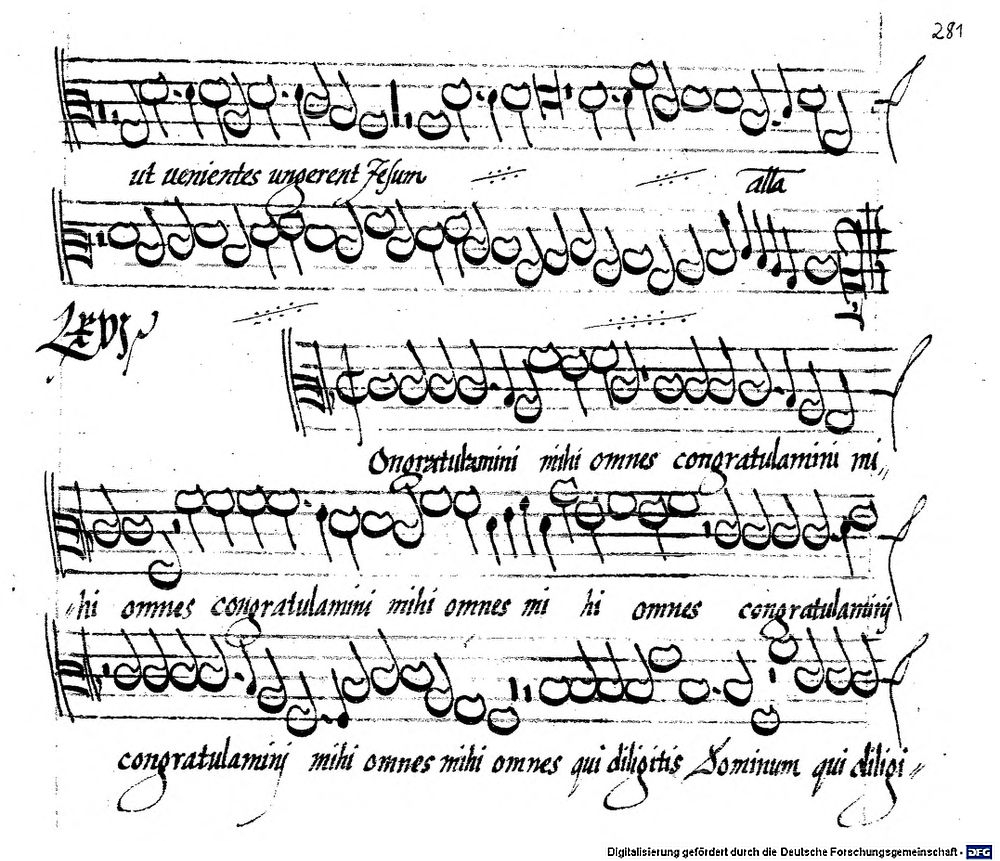 281
ut uenientes ungerent Jesum alla
LXVJ
Ongratulamini mihi omnes congratulamini mi„
„hi omnes congratulamini mihi omnes mi hi omnes congratulaminj
congratulaminj mihi omnes mihi omnes qui diligitis Dominum qui diligi„
Digitalisierung gefördert durch die Deutsche Forschungsgemeinschaft - DFG